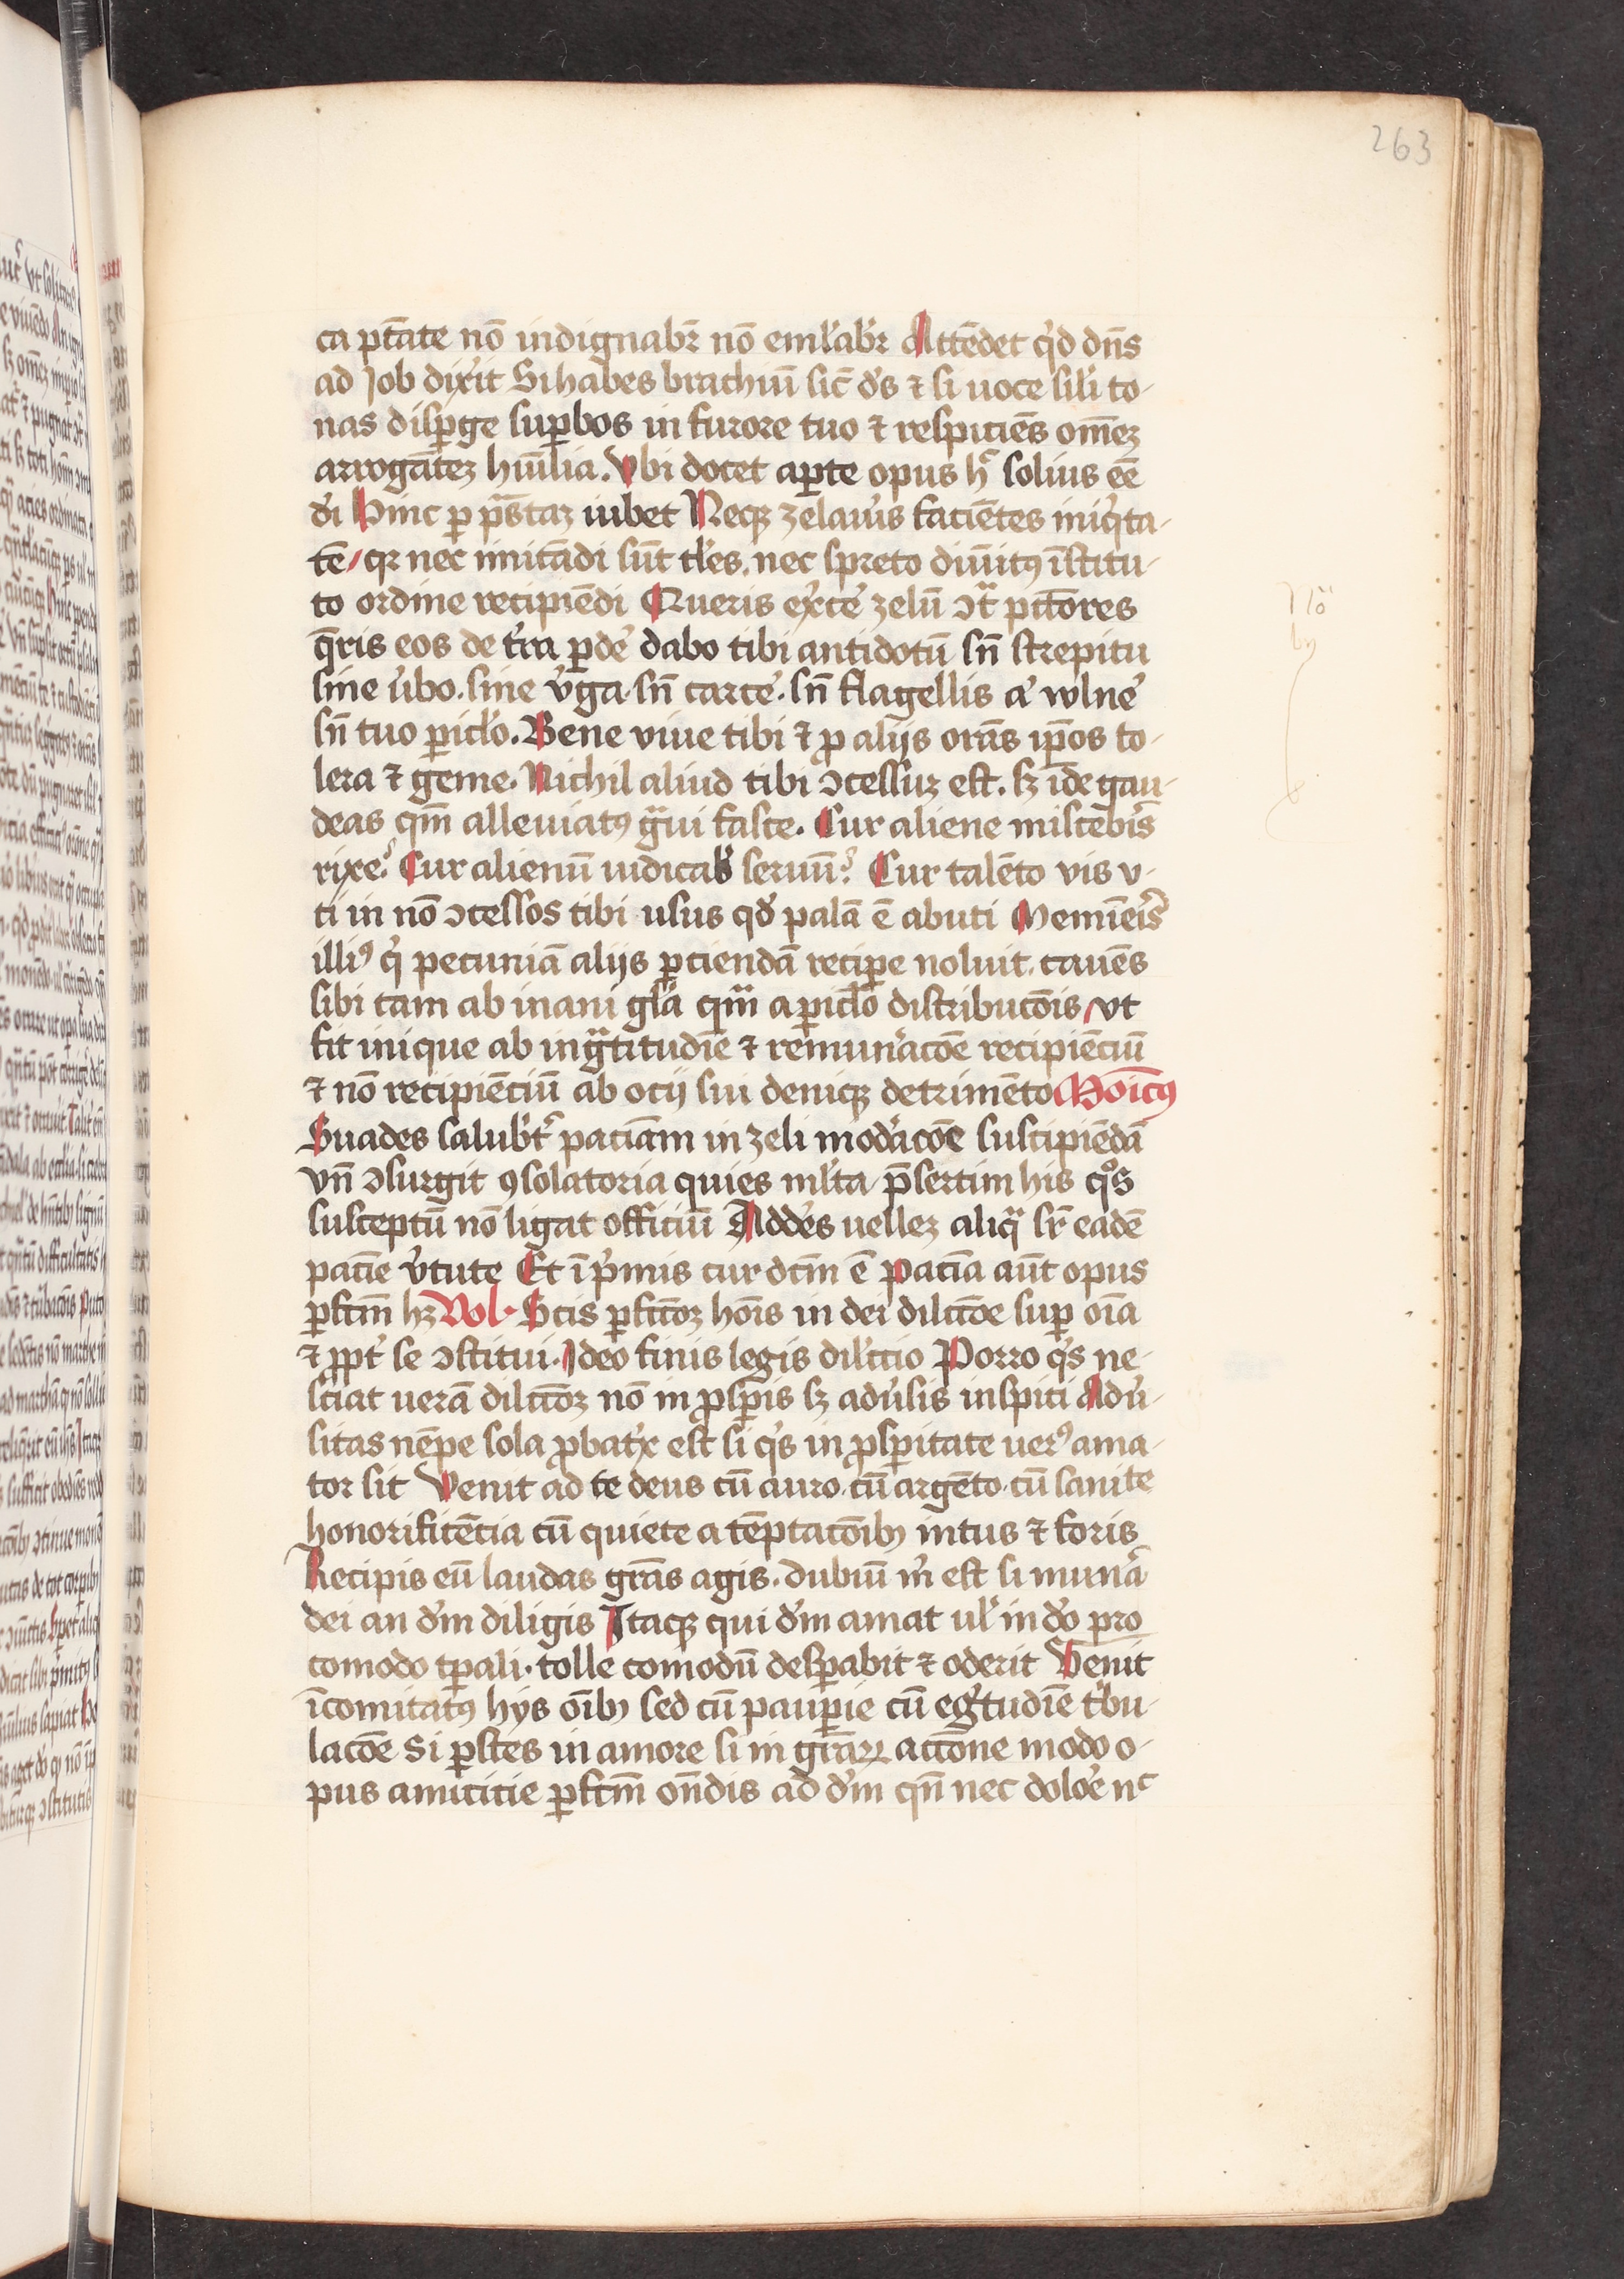 263
ca ptāte nō indignabr̄ nō eml'abr̄ Attēdet q'd dn̄s
ad Job dixit Si habes brachiū sic̄ d's ⁊ si uoce sil'i to-
nas disꝑge suꝑbos in furore tuo ⁊ respiciēs om̄eꝫ
arrogāteꝫ hūilia. Vbi docet aꝑte opus hᶜ solius eē
d'i Hinc ꝑ ꝓp̄taꝫ iubet Neqꝫ zelau'is faciētes iniq'ta-
tē/ qꝛ nec imitādi sūt tl'es. nec spreto diuinitꝰ īstitu-
to ordine recipiēdi Queris ex'ce' zelū ↄt̄ᵃ pcc̄ores
q̄ris eos de t'ra ꝑde' dabo tibi antidotū sn̄ strepitu
sine u'bo. sine v'ga. sn̄ carce'. sn̄ flagellis a' wlne'
sn̄ tuo ꝑicl'o. Bene viue tibi ⁊ ꝓ alijs orās ip̄os to-
lera ⁊ geme. Nichil aliud tibi ↄcessuꝫ est. sꝫ īde gau-
deas qm̄ alleuiatꝰ gᵃui fasce. Cur aliene miscebis
rixe? Cur alienū iudicab' seruū? Cur talēto vis v-
ti in nō ↄcessos tibi usus qd' palā ē abuti Memīeis
illiꝰ q' pecuniā alijs ꝑciendā reciꝑe noluit. cauēs
sibi tam ab inani gl'a qm̄ a ꝑicl'o distribucōis/ vt
fit inique ab ingᵃtitudīe ⁊ remun'acōe recipiēciū
⁊ nō recipiēciū ab ocij sui deniqꝫ detrimēto Moīcꝰ
Suades salubr̄t' paciam in zeli mod'acōe suscipiēdā
vn̄ ↄsurgit ꝯsolatoria quies ml'ta p̄sertim his qᵒs
susceptū nō ligat officiū Addes uelleꝫ aliqᵃ sr̄ eadē
pacīe v'tute Et ī p'mis cur dcm̄ ē Pacīa aūt opus
ꝑfcm̄ hꝫ Vol. Scis ꝑfcc̄oꝫ hoīs in dei dilcc̄oe suꝑ oīa
⁊ ꝓpt' se ↄstitui. Ideo finis legis dil'ctio Porro q's ne-
sciat uerā dilcc̄oꝫ nō in ꝓsꝑis sꝫ adu'sis inspici Adu'-
sitas nēpe sola ꝓbat'x est si q's in ꝓsꝑitate uerꝰ ama-
tor sit Venit ad te deus cū auro. cū argēto. cū sanite
honorificēcia cū quiete a tēptacōibꝫ intus ⁊ foris
Recipis eū laudas grās agis. dubiū m' est si mun'a
dei an dm̄ diligis Itaqꝫ qui dm̄ amat ul' in do' pro
comodo tꝑali. tolle comodū desꝑabit ⁊ oderit Venit
īcomitatꝰ hys oībꝫ sed cū pauꝑie cū eg'tudīe t'bu-
lacōe Si ꝑstes in amore si in grāꝝ accōne modo o-
pus amicitie ꝑfcm̄ on̄dis ad dm̄ qn̄ nec dolo'e nᶜ